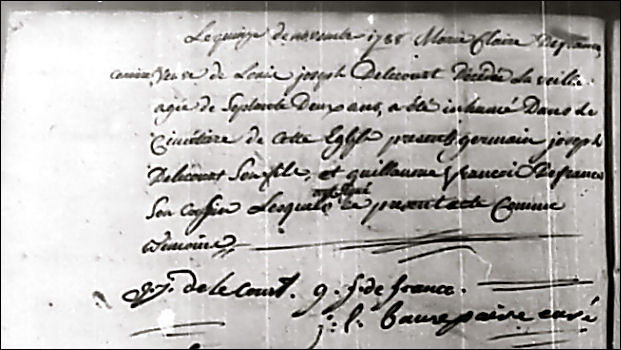 Le quinze de novembre 1788 Marie Claire Defrance
veuve de Louis joseph Delecourt Décédé La veille
agée de Septante Deux ans, a été inhumé Dans le
Cimitière de Cette Eglise presents germain joseph
Delecourt Son fils, et guillaume francois Defrance
Son Cousin Lesquels ont signé Le present acte Comme
témoins
g. j. de le Court. g. f. de france.
j: f. Baurepaire curé